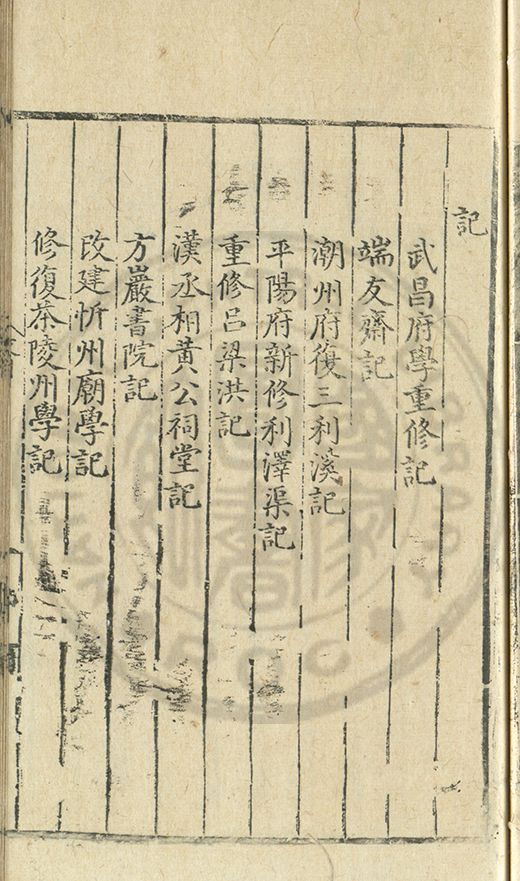 記
武昌府學重修記
端友齋記
潮州府復三利溪記
平陽府新修利澤渠記
重修呂梁洪記
漢丞相黃公祠堂記
方巖書院記
改建忻州廟學記
修復茶陵州學記